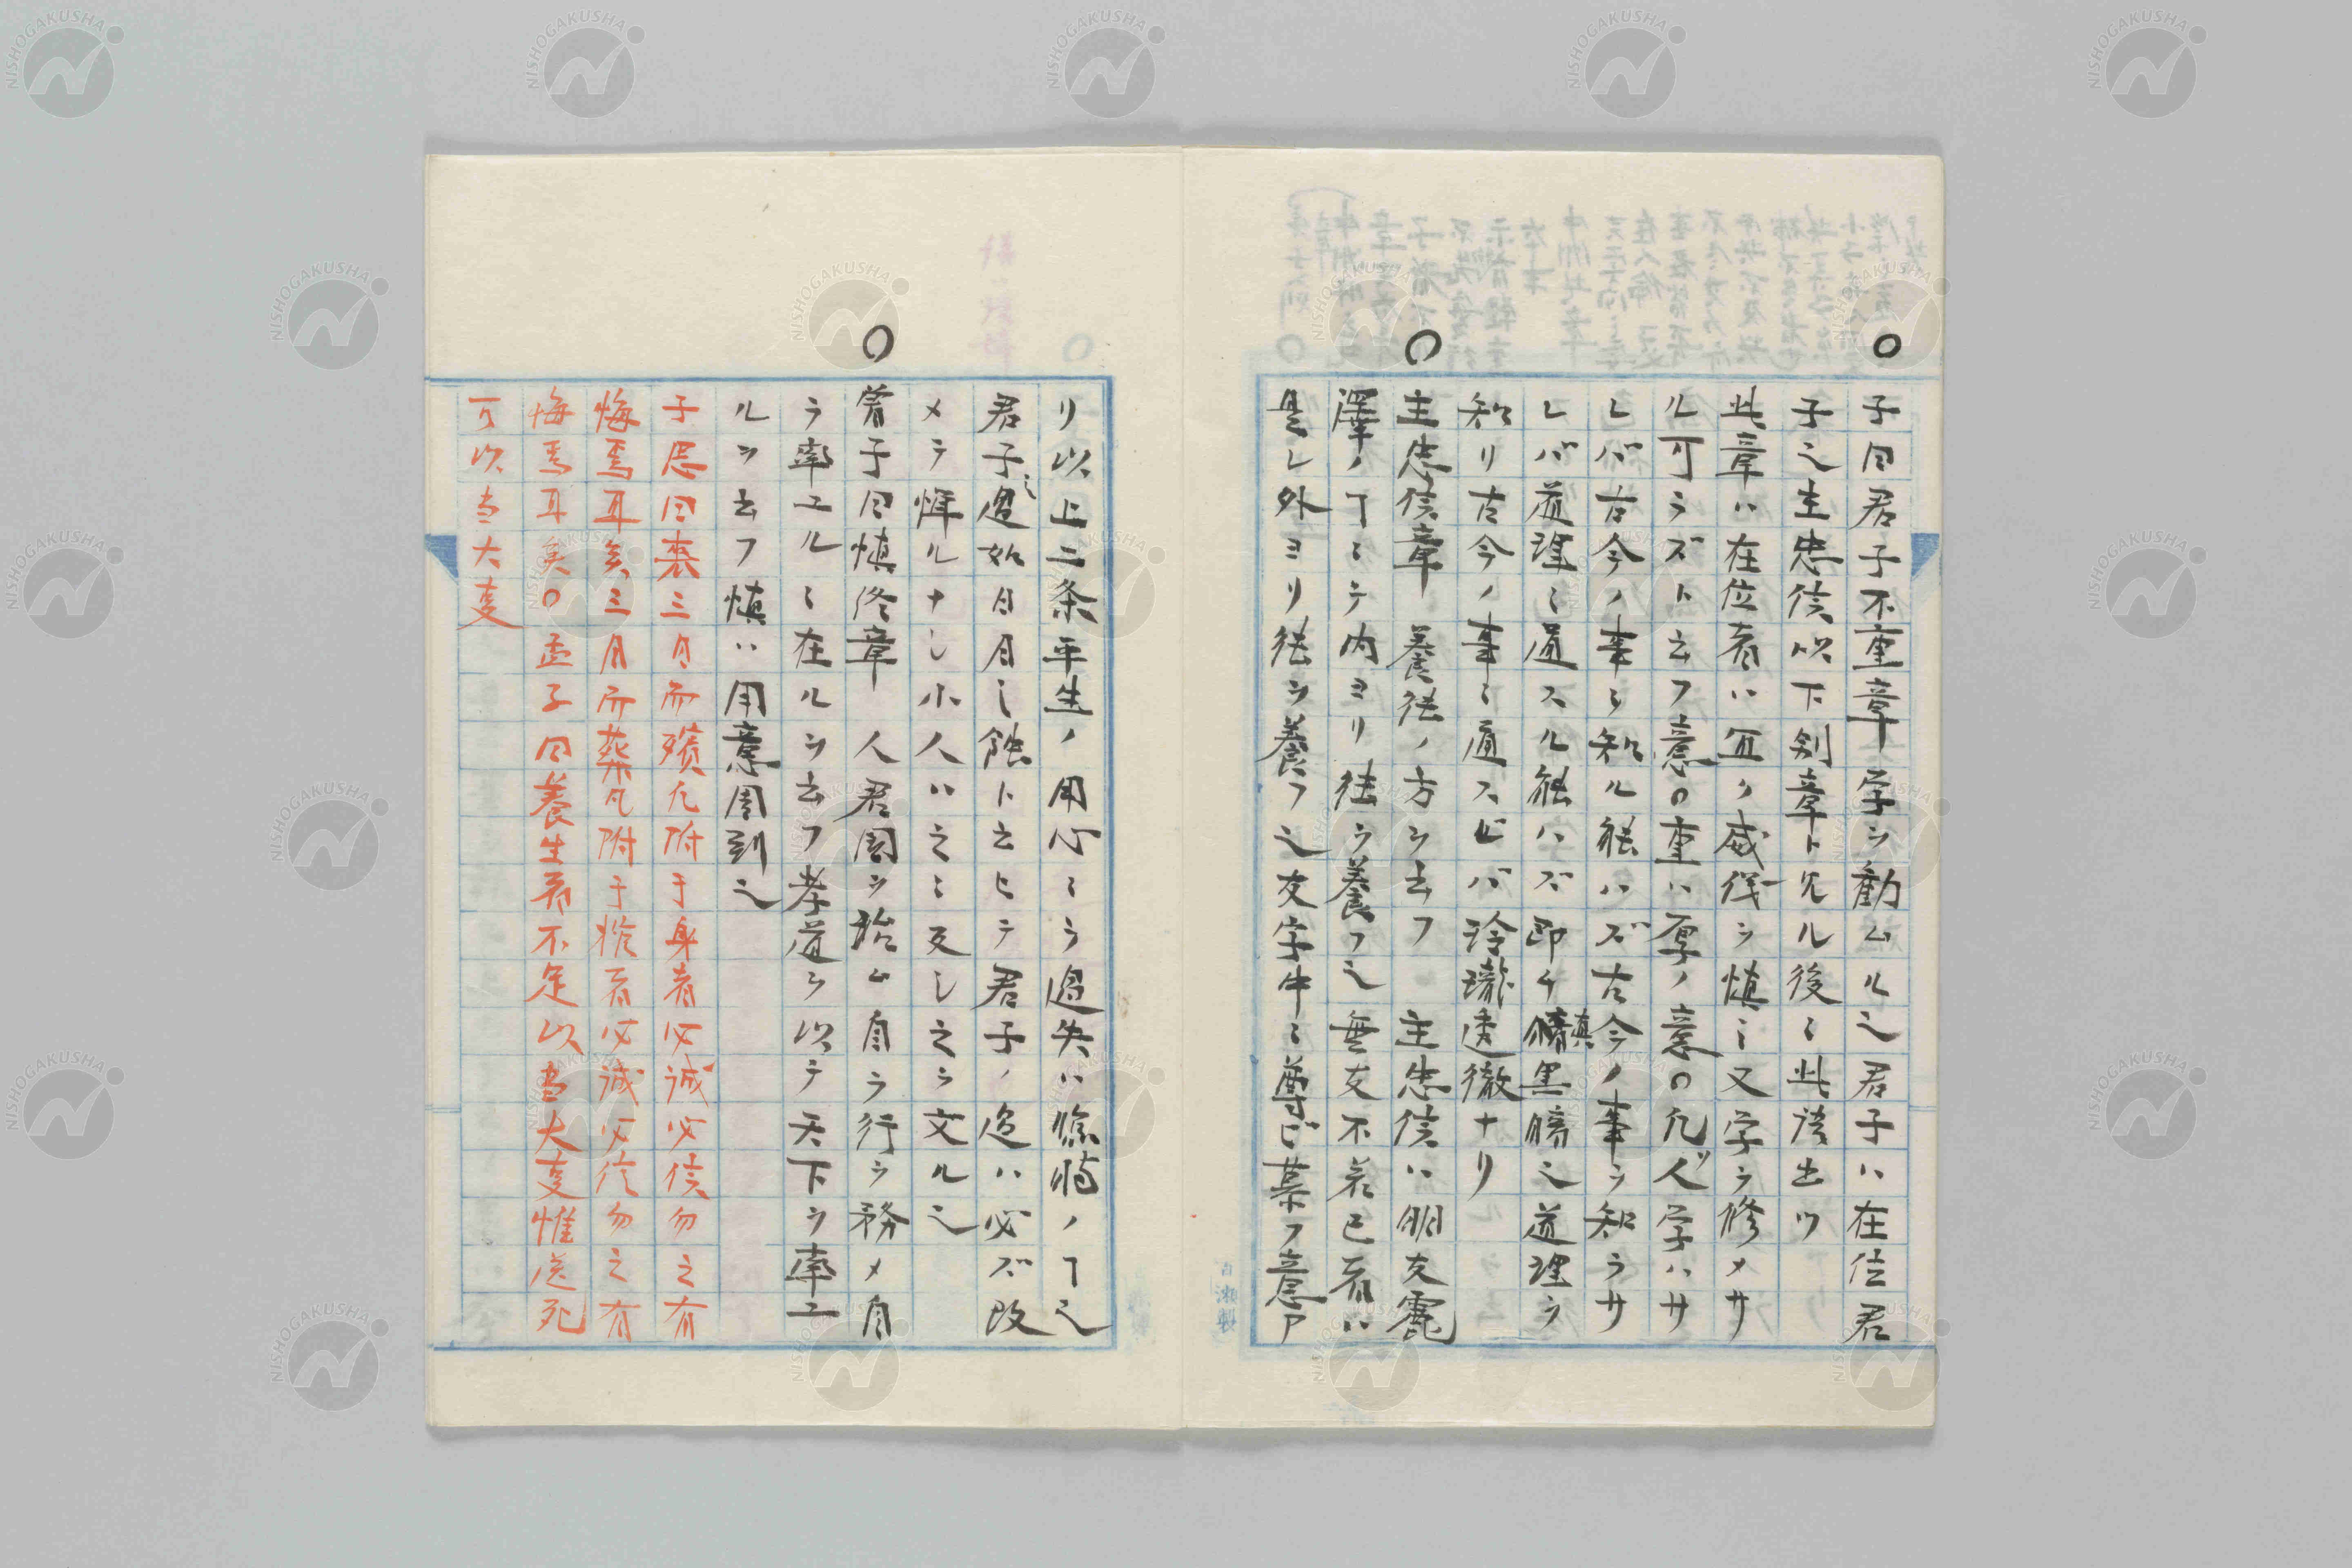 子曰君子不重章 学ヲ勸ムル之君子ハ在位君
子之主忠信以下別章ト見ル後ニ此語出ツ
此章ハ在位者ハ宜ク威儀ヲ慎ミ又学ヲ修メサ
ル可ラズト云フ意〇重ハ厚ノ意〇凡ソ人学ハサ
レバ古今ノ事ヲ知ル能ハズ古今ノ事ヲ知ラサ
レバ道理ニ通スル能ハズ即チ 黒 之道理ヲ
知リ古今ノ事ニ通スレバ玲瓏透徹ナリ
主忠信章 養徳ノ方ヲ云フ 主忠信ハ朋友麗
澤ノ丁ニテ内ヨリ徳ヲ養フ之無友不若己者ハ
是レ外ヨリ徳ヲ養フ之友字中ニ尊ビ慕フ意ア
リ以上二条平生ノ用心ニテ過失ハ ノ丁之
君子之過如日月之蝕ト云ヒテ君子ノ過ハ必ズ改
メテ憚ルナシ小人ハ之ニ反シ之ヲ文ル之
曽子曰慎終章 人君国ヲ治ム自ラ行ヲ務メ自
ラ率ユルニ在ルヲ云フ孝道ヲ以テ天下ヲ率ユ
ルヲ云フ慎ハ用意周到之
子思曰喪三日而殯凡附于身者必誠必信勿之有
悔焉耳矣三月而葬凡附于棺者必誠必信勿之有
悔焉耳矣〇孟子曰養生者不足以当大事惟送死
可以当大事